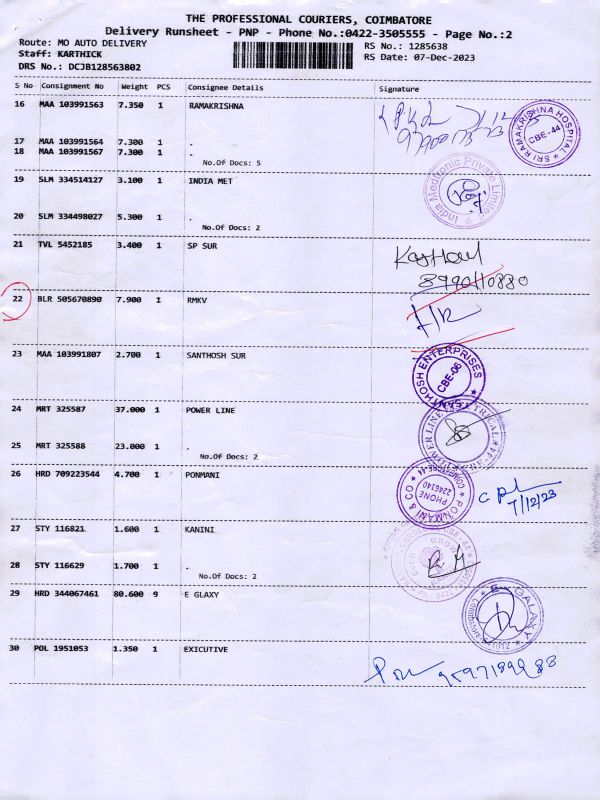 THE PROFESSIONAL COURIERS, COIMBATORE
Delivery Runsheet - PNP - Phone No.:0422-3505555 - Page No.:2
Route: MO AUTO DELIVERY
Staff: KARTHICK
DRS No.: DCJB128563802
RS No.: 1285638
RS Date: 07-Dec-2023
S No Consignment No Weight PCS Consignee Details Signature
16 MAA 103991563 7.350 1 RAMAKRISHNA
SRI RAMAKRISHNA HOSPITAL
CBE-44
17 MAA 103991564 7.300 1 .
18 MAA 103991567 7.300 1 .
No.Of Docs: 5
19 SLM 334514127 3.100 1 INDIA MET
India Medtronic Private Limited
20 SLM 334498027 5.300 1 .
No.Of Docs: 2
21 TVL 5452185 3.400 1 SP SUR
22 BLR 505670890 7.900 1 RMKV
23 MAA 103991807 2.700 1 SANTHOSH SUR
SANTHOSH ENTERPRISES
CBE-06
24 MRT 325587 37.000 1 POWER LINE
25 MRT 325588 23.000 1 .
No.Of Docs: 2
26 HRD 709223544 4.700 1 PONMANI
PONMANI & CO
PHONE
2246140
COIMBATORE-44
7/12/23
27 STY 116821 1.600 1 KANINI
28 STY 116629 1.700 1 .
No.Of Docs: 2
29 HRD 344067461 80.600 9 E GLAXY
30 POL 1951053 1.350 1 EXICUTIVE